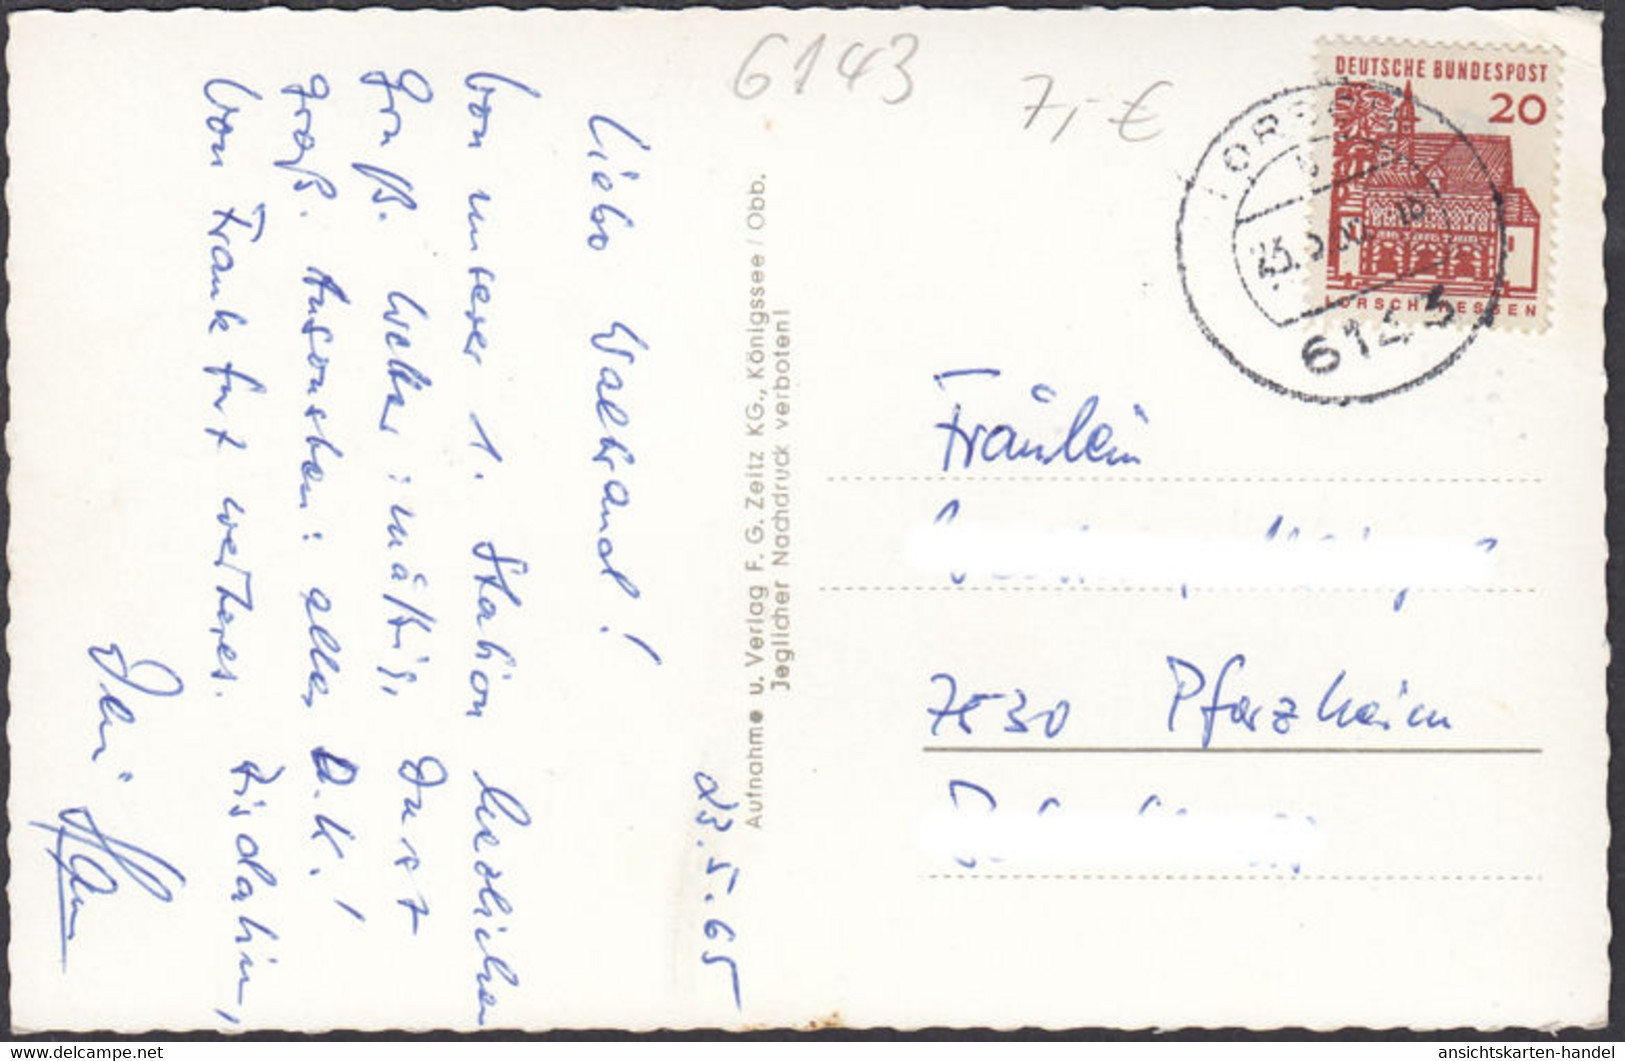 6143
7,- €
DEUTSCHE BUNDESPOST
20
LORSCH/HESSEN
LORSCH
6143
23.5.65
Liebe Waltraud!
Von unserer 1. Station herzlichen
Gruß. Wetter: mäßig, Durst
groß. Ansonsten: alles O.K.!
Von Frankfurt weiteres. Bis dahin,
Dein
Aufnahme u. Verlag F. G. Zeitz KG., Königssee / Obb.
Jeglicher Nachdruck verboten!
Fräulein
7530 Pforzheim
www.delcampe.net
ansichtskarten-handel